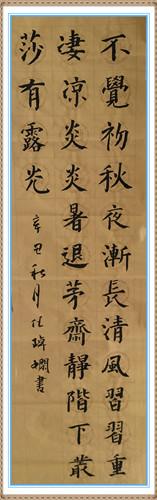 不覺初秋夜漸長清風習習重
淒涼炎炎暑退茅齋靜階下叢
莎有露光
辛丑秋月任瑞嫻書